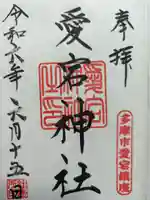 奉拝
多摩市愛宕鎮座
愛宕神社
令和六年
六月十五日